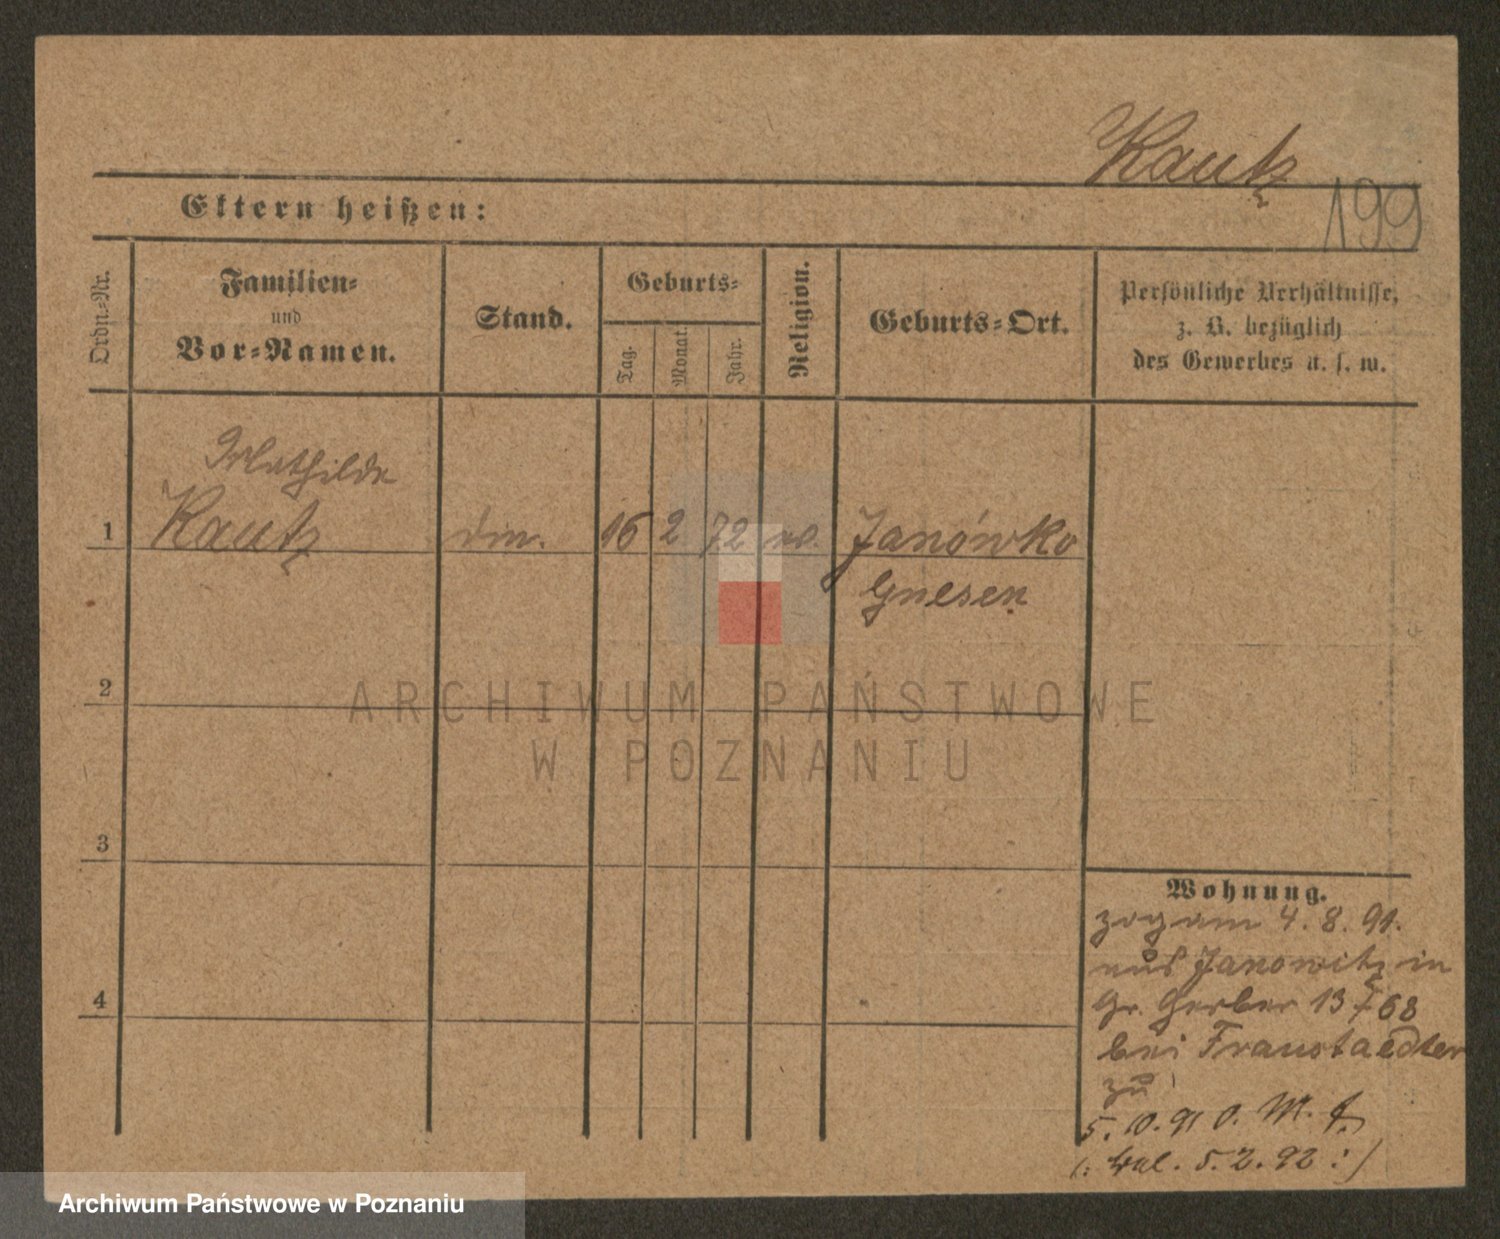 Kautz
199
Eltern heißen:
Ordn.-Nr.
Familien-
und
Vor-Namen.
Stand.
Geburts-
Tag.
Monat.
Jahr.
Religion.
Geburts-Ort.
Persönliche Verhältnisse,
z. B. bezüglich
des Gewerbes u. s. w.
Mathilde
1 Kautz 16 2 72 Janówko
Gnesen
2
ARCHIWUM PAŃSTWOWE
W POZNANIU
3
Wohnung.
zog am 4. 8. 91.
aus Janowitz in
Gr. Gerber 13 768
bei Fraustaedter
zu
5. 10. 91 O. M. f.
(: 5. 2. 92 :)
4
Archiwum Państwowe w Poznaniu